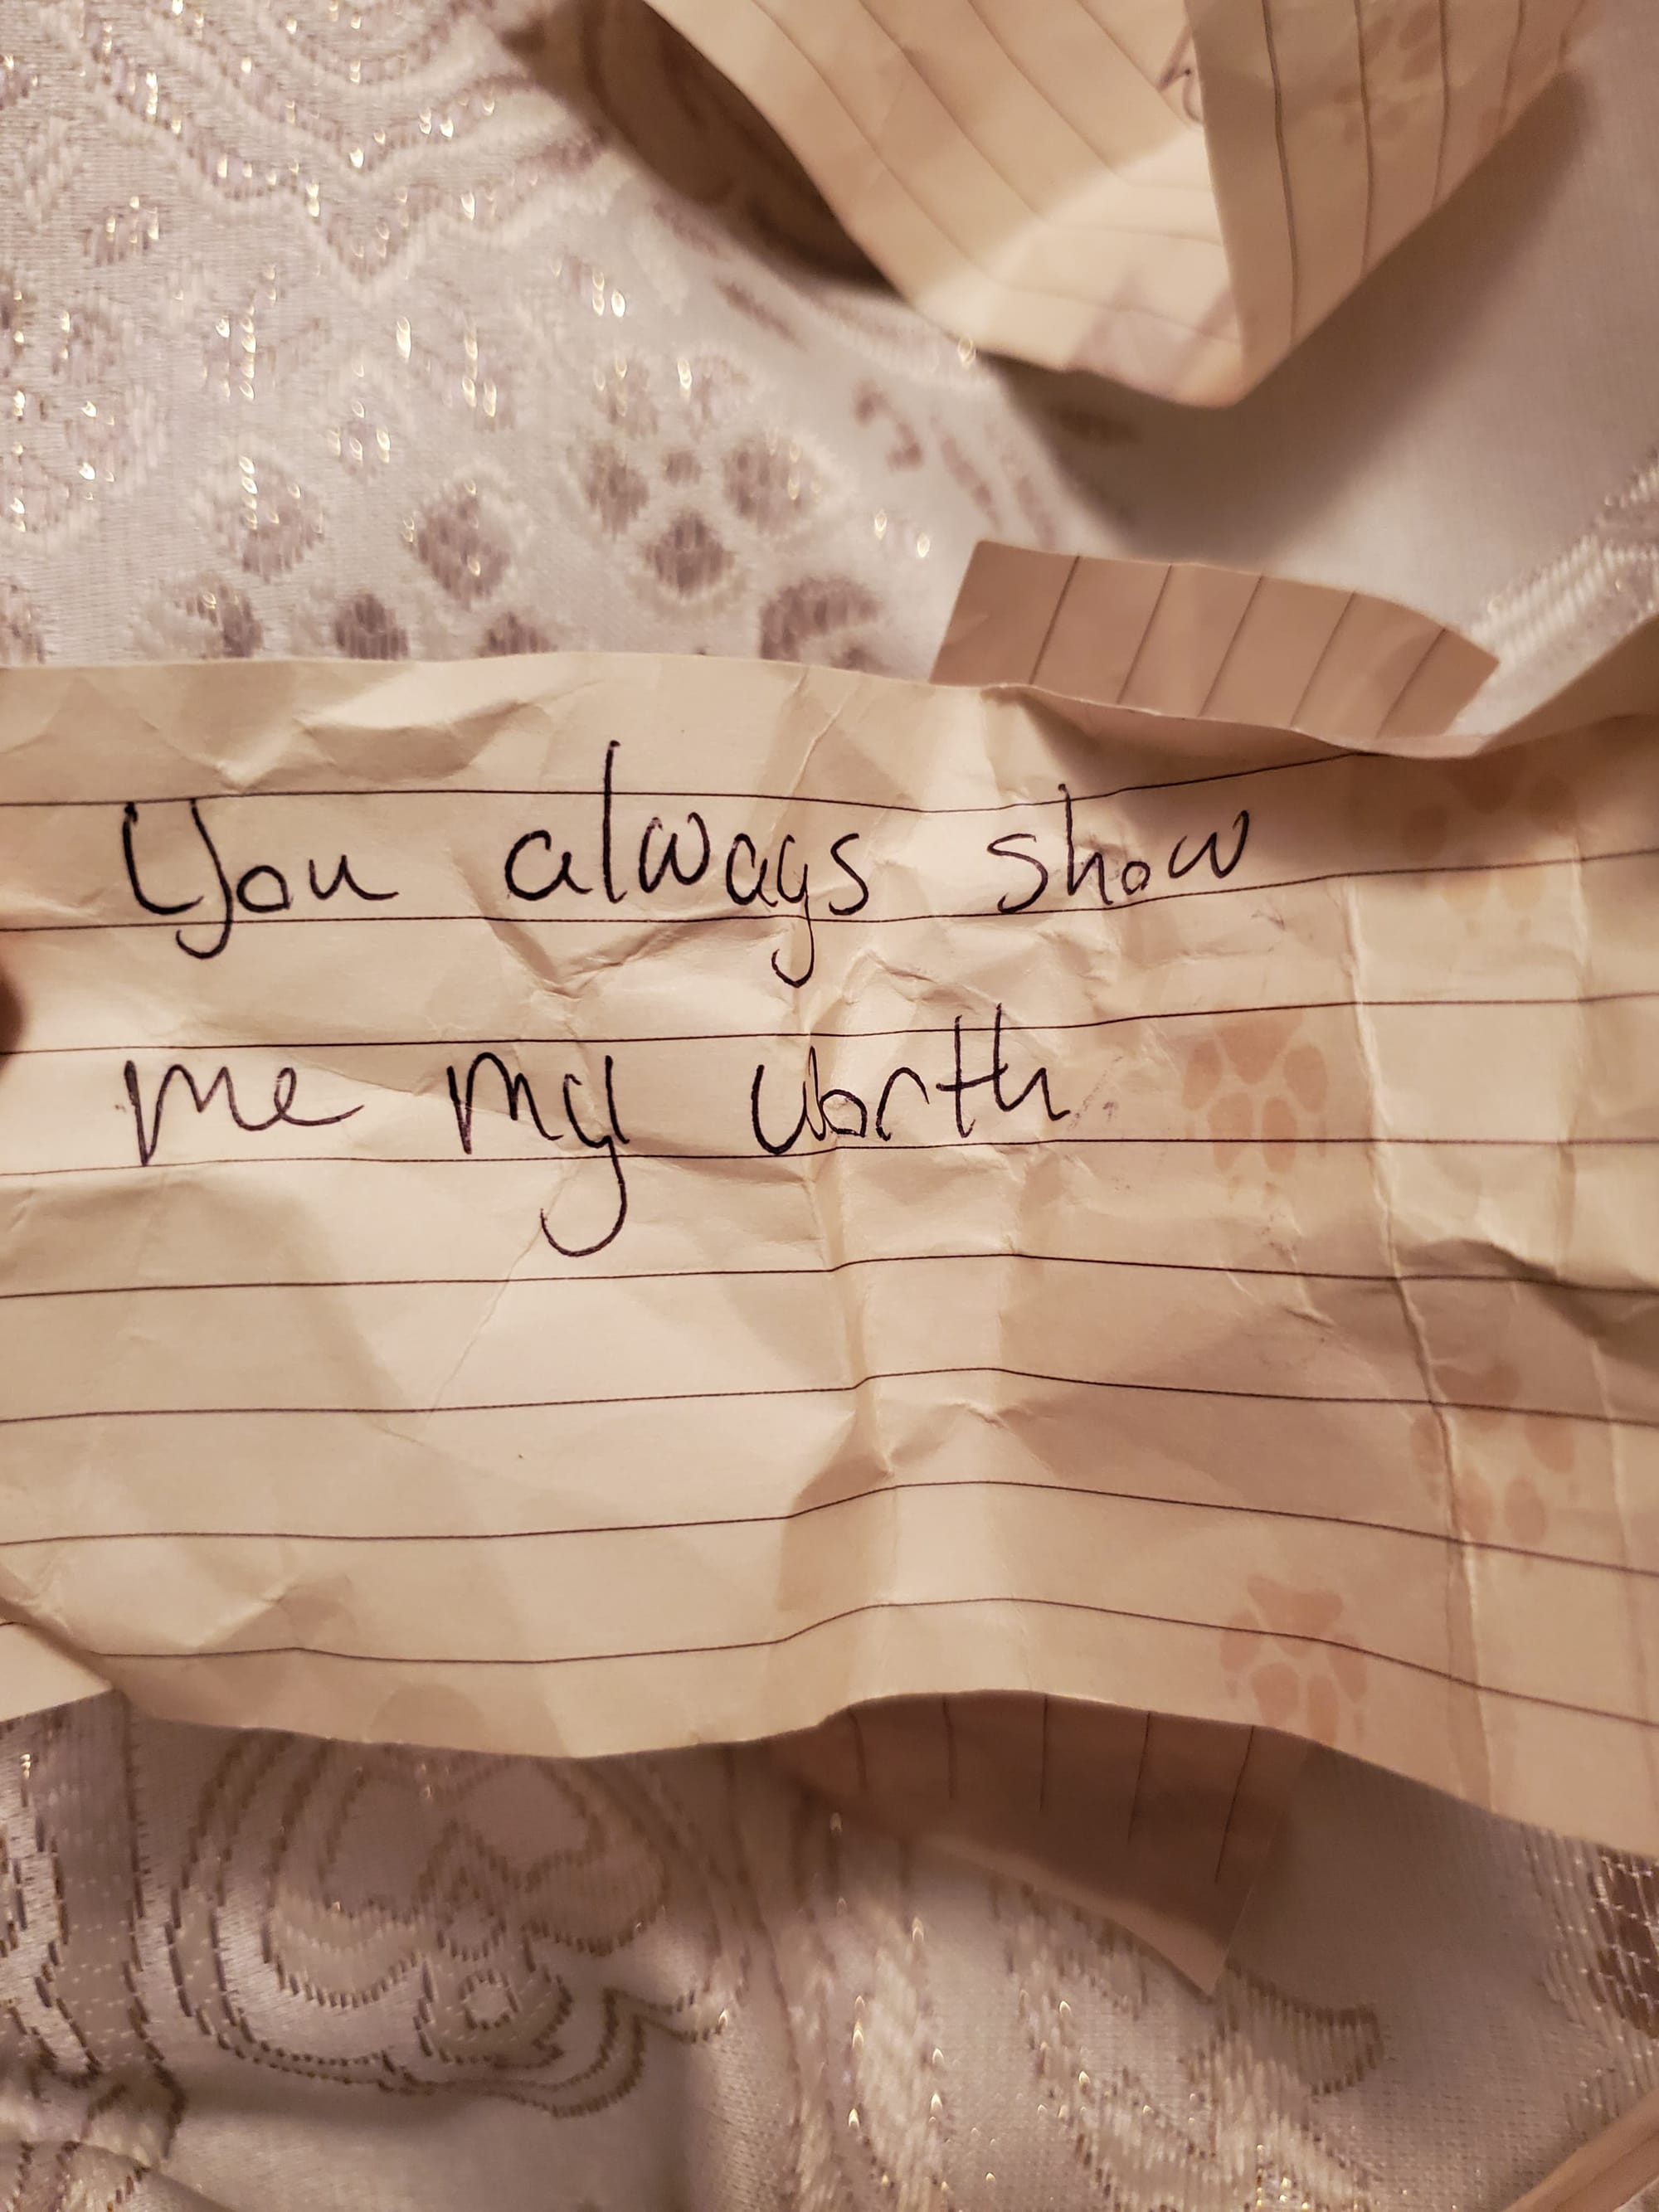 You always show
me my worth